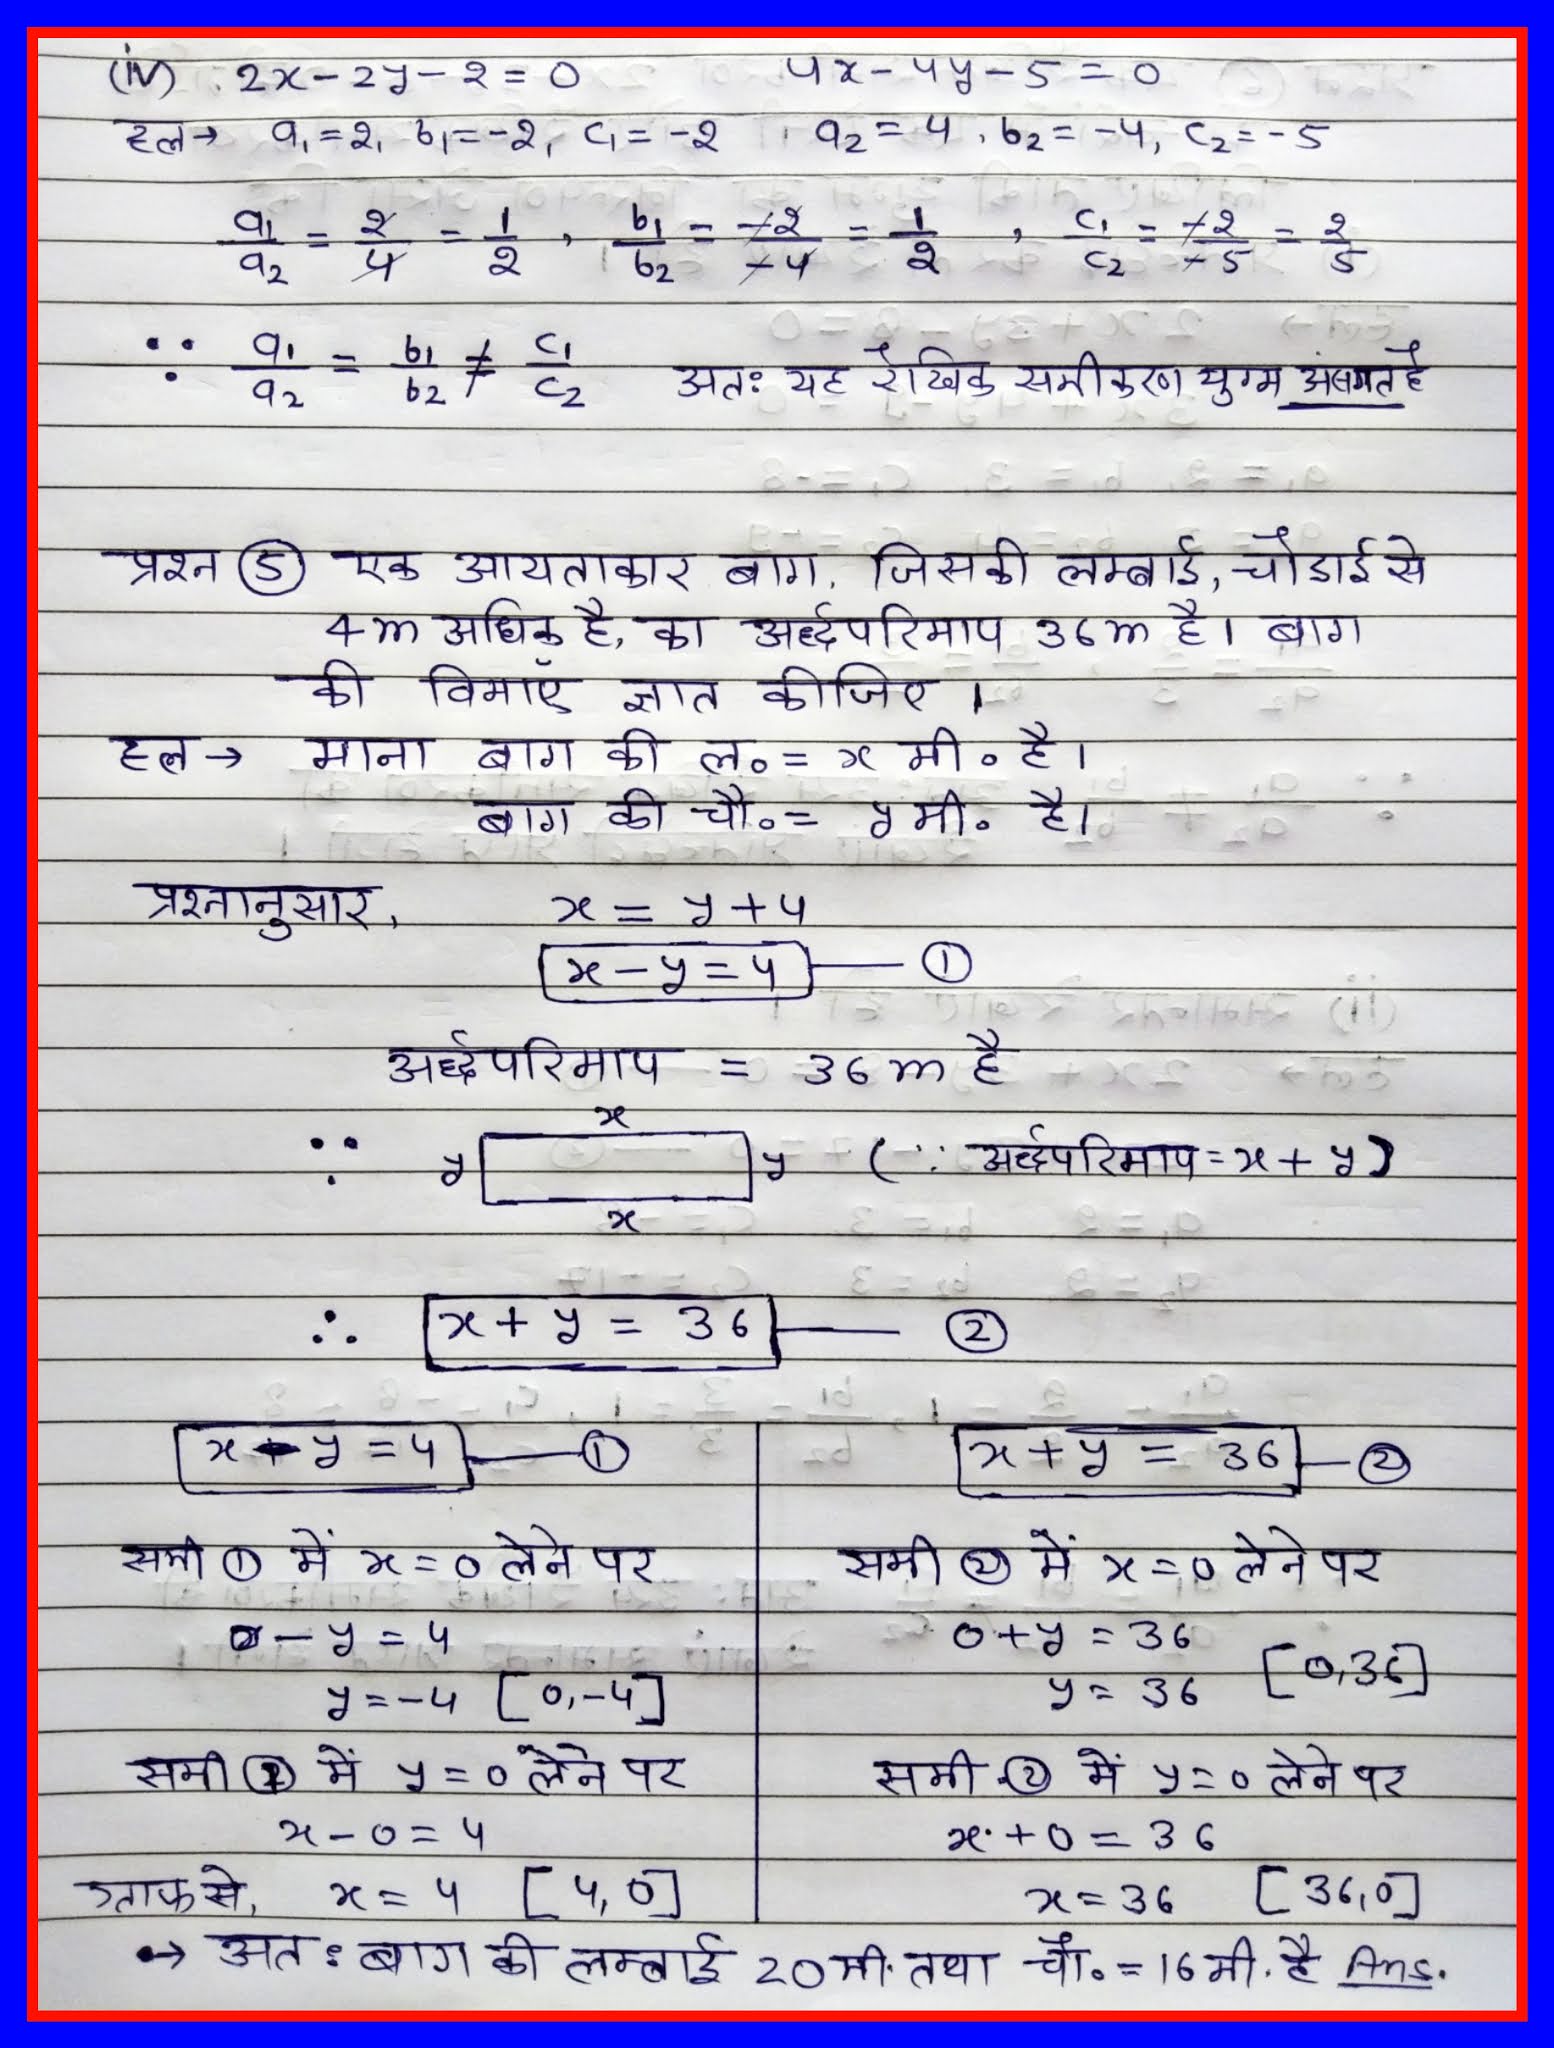 (iv) 2x - 2y - 2 = 0 4x - 4y - 5 = 0
हल→ a₁ = 2, b₁ = -2, c₁ = -2 , a₂ = 4 , b₂ = -4, c₂ = -5
a₁/a₂ = 2/4 = 1/2 , b₁/b₂ = -2/-4 = 1/2 , c₁/c₂ = -2/-5 = 2/5
∵ a₁/a₂ = b₁/b₂ ≠ c₁/c₂ अतः यह रैखिक समीकरण युग्म असंगत है
प्रश्न ⑤ एक आयताकार बाग, जिसकी लम्बाई, चौडाई से
4 m अधिक है, का अर्द्धपरिमाप 36 m है। बाग
की विमाएँ ज्ञात कीजिए ।
हल → माना बाग की ल॰ = x मी॰ है।
बाग की चौ॰ = y मी॰ है।
प्रश्नानुसार, x = y + 4
x - y = 4 — ①
अर्द्धपरिमाप = 36 m है
x
∵ y y ( ∵ अर्द्धपरिमाप = x + y )
x
∴ x + y = 36 — ②
x - y = 4 — ① x + y = 36 — ②
समी ① में x = 0 लेने पर समी ② में x = 0 लेने पर
0 - y = 4 0 + y = 36
y = -4 [0, -4] y = 36 [0, 36]
समी ① में y = 0 लेने पर समी ② में y = 0 लेने पर
x - 0 = 4 x + 0 = 36
ग्राफ से, x = 4 [4, 0] x = 36 [36, 0]
→ अतः बाग की लम्बाई 20 मी. तथा चौ॰ = 16 मी. है Ans.